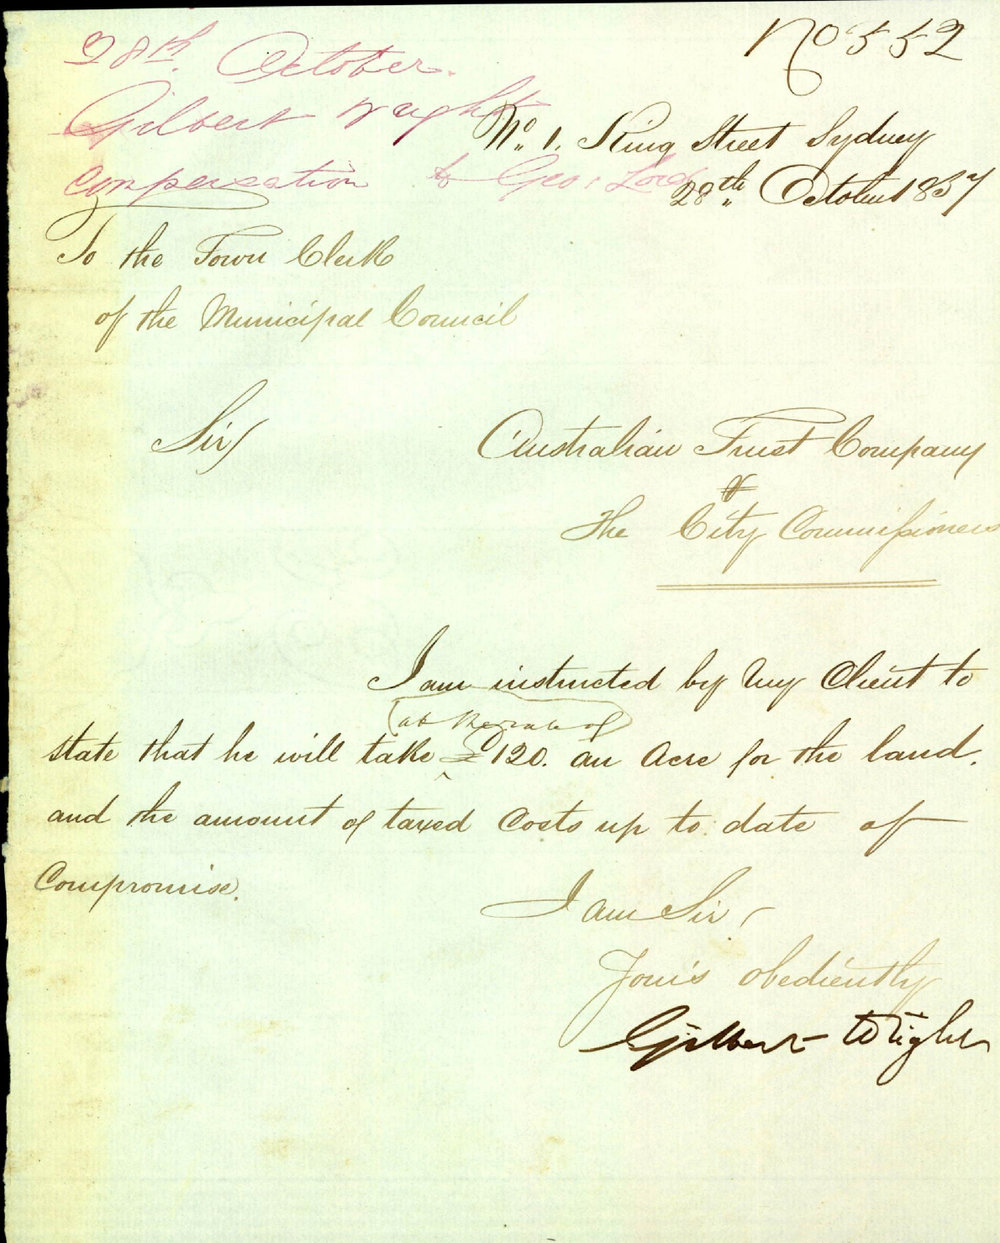 No 552
28th. October.
Gilbert Wright
compensation to Geo: Lord
No. 1. King Street Sydney
28th October 1857
To the Town Clerk
of the Municipal Council
Sir/
Australian Trust Company
The City Commissioners
I am instructed by my Client to
at the rate of
state that he will take £120. an Acre for the land.
and the amount of taxed Costs up to date of
Compromise.
I am Sir
Yours obediently
Gilbert Wright